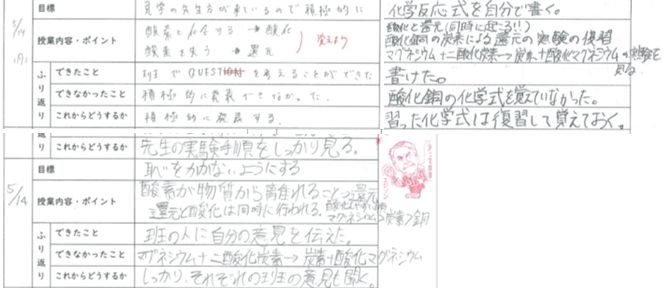 目標 見学の先生方が来ているので積極的に
5/14 (月)
授業内容・ポイント
酸素と化合する → 酸化
酸素を失う → 還元
覚えよう
ふり返り
できたこと 班でQUESTIONを考えることができた
できなかったこと 積極的に発表できなかった。
これからどうするか 積極的に発言する。
化学反応式を自分で書く。
酸化と還元(同時に起こる!!)
酸化銅の炭素による還元の実験の復習
マグネシウム+二酸化炭素→炭素+酸化マグネシウムの実験を
書けた。
酸化銅の化学式を覚えていなかった。
習った化学式は復習して覚えておく。
これからどうするか 先生の実験手順をしっかり見る。
目標 恥をかかないようにする
5/14
授業内容・ポイント
酸素が物質から離れること→還元
還元と酸化は同時に行われる。
マグネシウム>炭素>銅
ふり返り
できたこと 班の人に自分の意見を伝えた。
できなかったこと マグネシウム+二酸化炭素→炭素+酸化マグネシウム
これからどうするか しっかり、それぞれの班の意見も聞く。